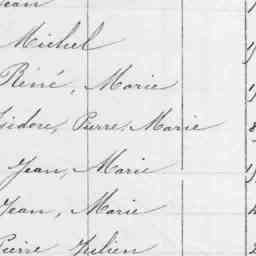 Jean
Michel
Réné, Marie
Isidore, Pierre, Marie
Jean, Marie
Jean, Marie
Pierre Julien